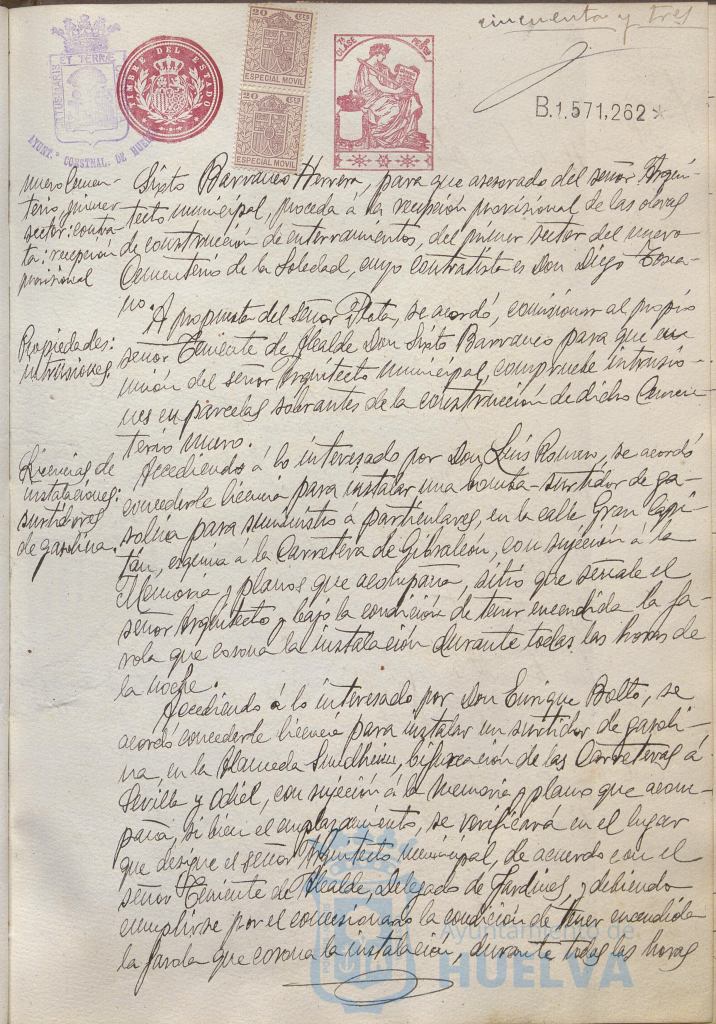 cincuenta y tres
PORTUS MARIS ET TERRÆ
AYUNT.º CONSTNAL. DE HUELVA
TIMBRE DEL ESTADO
20 CS
ESPECIAL MOVIL
20 CS
ESPECIAL MOVIL
7ª CLASE
B.1.571.262*
nuevo Cemen-
terio, primer
sector: contra-
ta: recepción
provisional
Sixto Barranco Herrera, para que asesorado del señor Arqui-
tecto municipal, proceda á la recepción provisional de las obras
de construcción de enterramientos, del primer sector del nuevo
Cementerio de la Soledad, cuyo contratista es Don Diego Tosca-
no.
Propiedades:
intrusiones.
A propuesta del señor Plata, se acordó, comisionar al propio
señor Teniente de Alcalde Don Sixto Barranco para que en
unión del señor Arquitecto municipal, compruebe intrusio-
nes en parcelas sobrantes de la construcción de dicho Cemen-
terio nuevo.
Licencias de
instalaciones:
surtidores
de gasolina.
Accediendo á lo interesado por Don Luis Romero, se acordó
concederle licencia para instalar una bomba-surtidor de ga-
solina para suministro á particulares, en la calle Gran Capi-
tán, esquina a la Carretera de Gibraleón, con sujeción a la
Memoria y planos que acompaña, sitio que señale el
señor Arquitecto y bajo la condición de tener encendida la fa-
rola que corona la instalación durante todas las horas de
la noche.
Accediendo á lo interesado por Don Enrique Bolto, se
acordó concederle licencia para instalar un surtidor de gasoli-
na, en la Alameda Sundheim, bifurcación de las Carreteras á
Sevilla y Odiel, con sujeción á la memoria y plano que acom-
paña, si bien el emplazamiento, se verificará en el lugar
que designe el señor Arquitecto municipal, de acuerdo con el
señor Teniente de Alcalde, delegado de Jardines, y debiendo
cumplirse por el concesionario la condición de tener encendida
la farola que corona la instalación, durante todas las horas
Ayuntamiento de
HUELVA